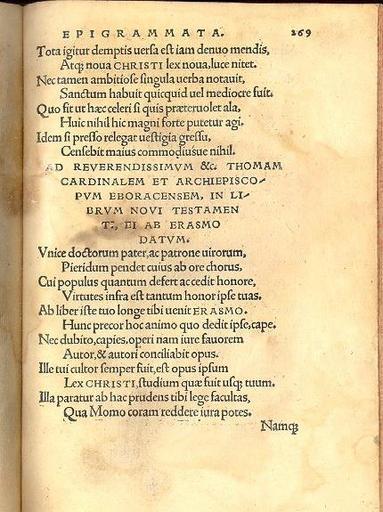 EPIGRAMMATA. 269
Tota igitur demptis uersa est iam denuo mendis,
Atq; noua CHRISTI lex noua, luce nitet.
Nec tamen ambitiose singula uerba notauit,
Sanctum habuit quicquid uel mediocre fuit.
Quo fit ut hæc celeri si quis præteruolet ala,
Huic nihil hic magni forte putetur agi.
Idem si presso relegat uestigia gressu,
Censebit maius commodiusue nihil.
AD REVERENDISSIMVM &c. THOMAM
CARDINALEM ET ARCHIEPISCO-
PVM EBORACENSEM, IN LI-
BRVM NOVI TESTAMEN
TI, EI AB ERASMO
DATVM.
Vnice doctorum pater, ac patrone uirorum,
Pieridum pendet cuius ab ore chorus,
Cui populus quantum defert accedit honore,
Virtutes infra est tantum honor ipse tuas.
Ab liber iste tuo longe tibi uenit ERASMO.
Hunc precor hoc animo quo dedit ipse, cape.
Nec dubito, capies. operi nam iure fauorem
Autor, & autori conciliabit opus.
Ille tui cultor semper fuit, est opus ipsum
Lex CHRISTI, studium quæ fuit usq; tuum.
Illa paratur ab hac prudens tibi lege facultas,
Qua Momo coram reddere iura potes.
Namq;